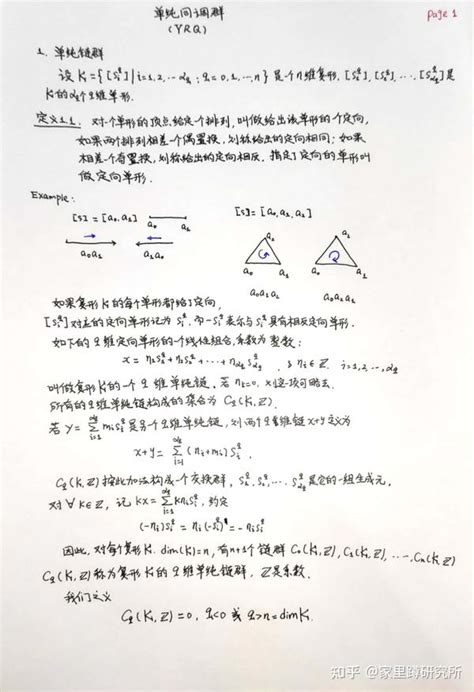 单纯同调群
(YRQ)
Page 1
1. 单纯链群
设 K = { [S_i^q] | i=1,2,…α_q ; q=0,1,…,n } 是个 n 维复形, [S_1^q], [S_2^q], …, [S_{α_q}^q] 是
K 的 α_q 个 q 维单形.
定义1.1. 对个单形的顶点给定一个排列, 叫做给出该单形的一个定向,
如果两个排列相差一个偶置换, 则称给出的定向相同; 如果
相差一个奇置换, 则称给出的定向相反. 指定了定向的单形叫
做定向单形.
Example:
[S] = [a_0, a_1]
[S] = [a_0, a_1, a_2]
a_0a_1
a_1a_0
a_0
a_1
a_2
a_0a_1a_2
a_0
a_1
a_2
如果复形 K 的每个单形都给了定向,
[S_i^q] 对应的定向单形记为 S_i^q. 而 -S_i^q 表示与 S_i^q 具有相反定向单形.
如下的 q 维定向单形的一个线性组合, 系数为整数:
x = n_1S_1^q + n_2S_2^q + … + n_{α_q}S_{α_q}^q , n_i ∈ Z. i=1,2…,α_q
叫做复形 K 的一个 q 维单纯链. 若 n_i=0, 则这项可略去.
所有的 q 维单纯链构成的集合为 C_q(K, Z).
若 y = \sum_{i=1}^{α_q} m_iS_i^q 是另一个 q 维单纯链, 则两个 q 维链 x+y 定义为
x+y = \sum_{i=1}^{α_q} (n_i+m_i) S_i^q.
C_q(K, Z) 按此加法构成一个交换群, S_1^q, S_2^q, …, S_{α_q}^q 是它的一组生成元,
对 ∀ k∈Z, 记 kx = \sum_{i=1}^{α_q} kn_iS_i^q, 约定
(-n_i)S_i^q = n_i(-S_i^q) = -n_iS_i^q
因此, 对每个复形 K. dim(K)=n, 有 n+1 个链群 C_0(K, Z), C_1(K, Z), …, C_n(K, Z)
C_q(K, Z) 称为复形 K 的 q 维单纯链群, Z 是系数.
我们定义
C_q(K, Z) = 0, q<0 或 q>n=dim K.
知乎 @家里蹲研究所